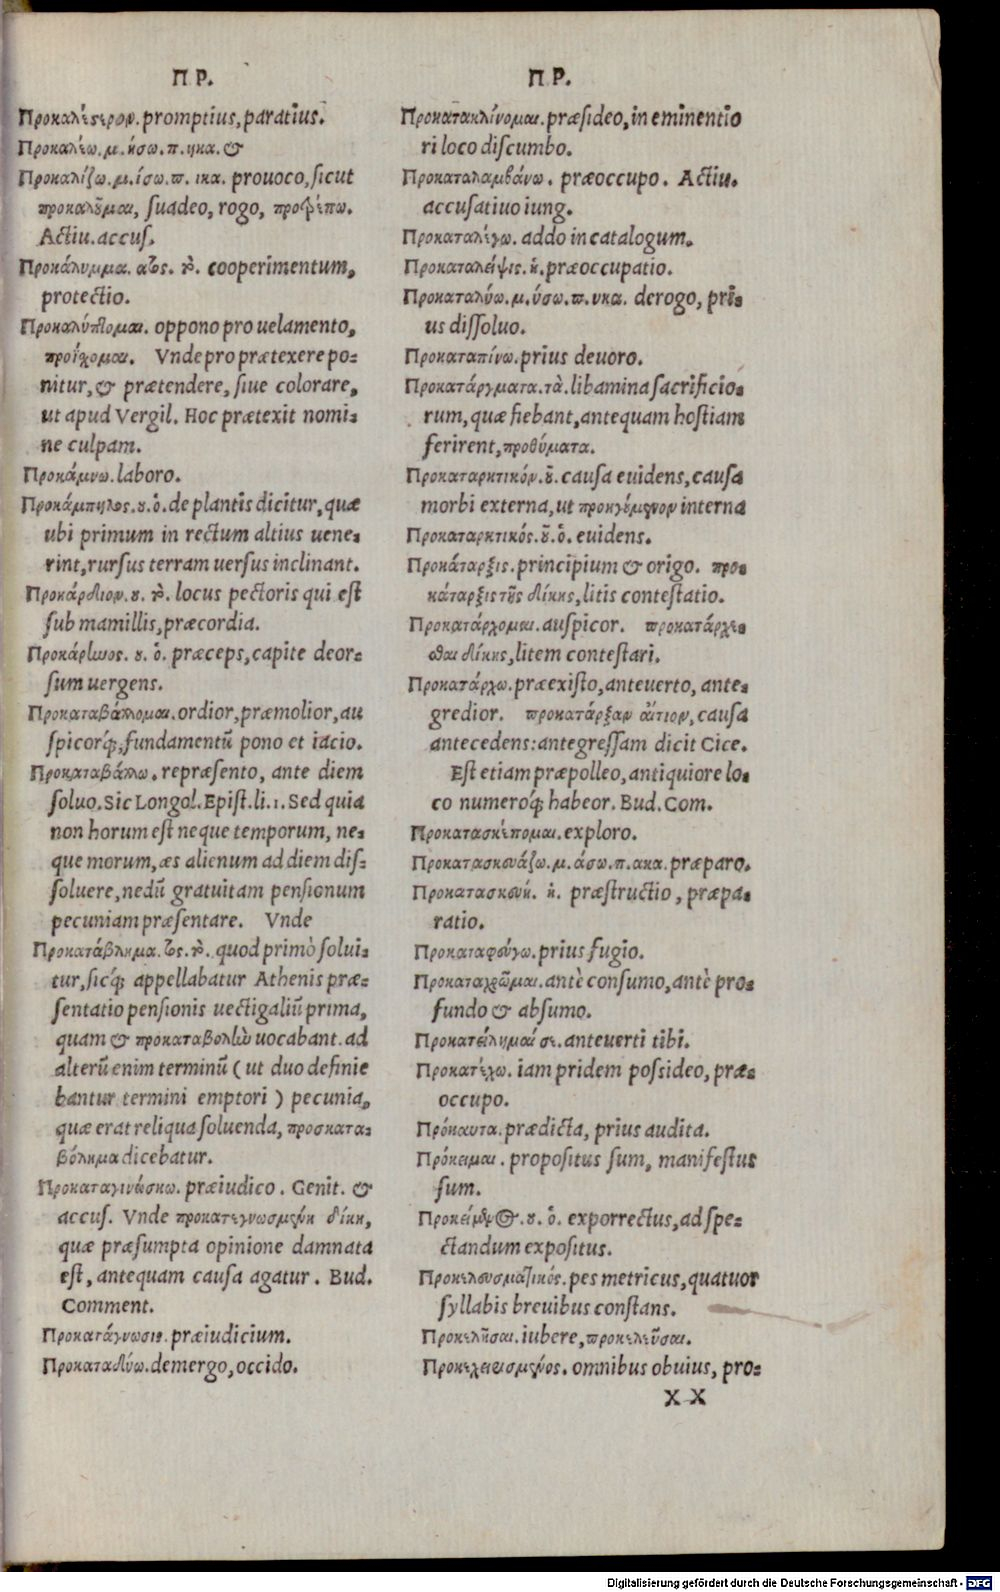 ΠΡ.
Προκαλέστερον. promptius, paratius.
Προκαλέω. μ. ήσω. π. ηκα. &
Προκαλίζω. μ. ίσω. π. ικα. prouoco, sicut
προκαλοῦμαι, suadeo, rogo, προτρέπω.
Actiu. accus.
Προκάλυμμα. ατος. τὸ. cooperimentum,
protectio.
Προκαλύπτομαι. oppono pro uelamento,
προΐσχομαι. Vnde pro prætexere po-
nitur, & prætendere, siue colorare,
ut apud Vergil. Hoc prætexit nomi-
ne culpam.
Προκάμνω. laboro.
Προκάμπυλος. ου. ὁ. de plantis dicitur, quæ
ubi primum in rectum altius uene-
rint, rursus terram uersus inclinant.
Προκάρδιον. ου. τὸ. locus pectoris qui est
sub mamillis, præcordia.
Προκάρηνος. ου. ὁ. præceps, capite deor-
sum uergens.
Προκαταβάλλομαι. ordior, præmolior, au
spicorq́;, fundamentū pono et iacio.
Προκαταβάλλω. repræsento, ante diem
soluo. Sic Longol. Epist. li. 1. Sed quia
non horum est neque temporum, ne-
que morum, æs alienum ad diem dis-
soluere, nedū gratuitam pensionum
pecuniam præsentare. Vnde
Προκατάβλημα. τος. τὸ. quod primò solui-
tur, sicq́; appellabatur Athenis præ-
sentatio pensionis uectigaliū prima,
quam & προκαταβολὴν uocabant. ad
alterū enim terminū ( ut duo definie
bantur termini emptori ) pecunia,
quæ erat reliqua soluenda, προσκατα-
βόλημα dicebatur.
Προκαταγινώσκω. præiudico. Genit. &
accus. Vnde προκατεγνωσμένη δίκη,
quæ præsumpta opinione damnata
est, antequam causa agatur. Bud.
Comment.
Προκατάγνωσις. præiudicium.
Προκαταδύω. demergo, occido.
ΠΡ.
Προκατακλίνομαι. præsideo, in eminentio
ri loco discumbo.
Προκαταλαμβάνω. præoccupo. Actiu.
accusatiuo iung.
Προκαταλέγω. addo in catalogum.
Προκαταλείψις. ἡ. præoccupatio.
Προκαταλύω. μ. ύσω. π. υκα. derogo, pri-
us dissoluo.
Προκαταπίνω. prius deuoro.
Προκατάργματα. τὰ. libamina sacrificio-
rum, quæ fiebant, antequam hostiam
ferirent, προθύματα.
Προκαταρκτικόν. οῦ. causa euidens, causa
morbi externa, ut προηγούμενον interna
Προκαταρκτικός. οῦ. ὁ. euidens.
Προκάταρξις. principium & origo. προ-
κάταρξις τῆς δίκης, litis contestatio.
Προκατάρχομαι. auspicor. προκατάρχε-
σθαι δίκης, litem contestari.
Προκατάρχω. præexisto, anteuerto, ante-
gredior. προκατάρξαν αἴτιον, causa
antecedens: antegressam dicit Cice.
Est etiam præpolleo, antiquiore lo-
co numeroq́; habeor. Bud. Com.
Προκατασκέπομαι. exploro.
Προκατασκευάζω. μ. άσω. π. ακα. præparo.
Προκατασκευή. ἡ. præstructio, præpa-
ratio.
Προκαταφεύγω. prius fugio.
Προκαταχρῶμαι. antè consumo, antè pro-
fundo & absumo.
Προκατείλημαί σε. anteuerti tibi.
Προκατέχω. iam pridem possideo, præ-
occupo.
Πρόκαυτα. prædicta, prius audita.
Πρόκειμαι. propositus sum, manifestus
sum.
Προκείμενος. ου. ὁ. exporrectus, ad spe-
ctandum expositus.
Προκελευσματικός. pes metricus, quatuor
syllabis breuibus constans.
Προκελῆσαι. iubere, προκελεῦσαι.
Προκεχειρισμένος. omnibus obuius, pro-
XX
Digitalisierung gefördert durch die Deutsche Forschungsgemeinschaft - DFG